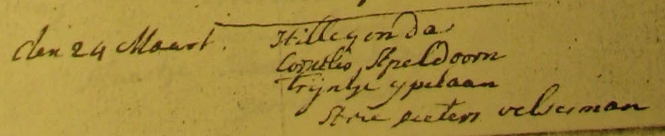 den 24 Maart. Hillegonda
Cornelis Apeldoorn
Trijntje ypelaan
pieters velserman